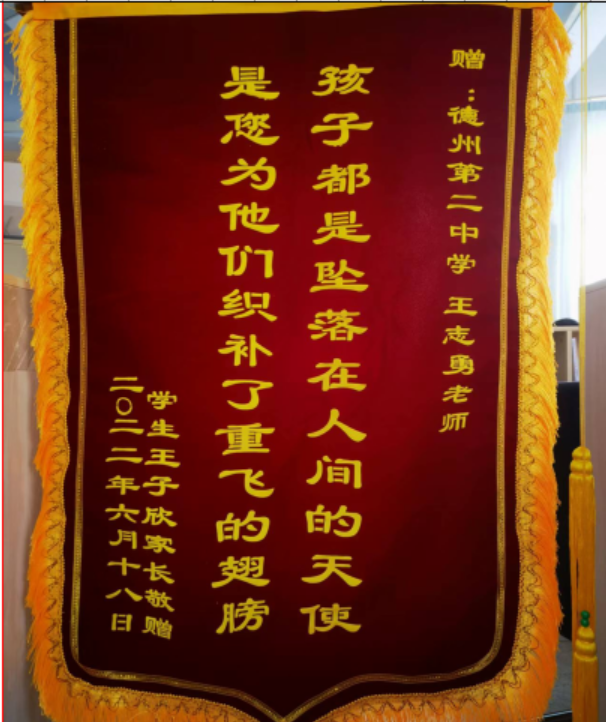 赠：德州第二中学 王志勇老师
孩子都是坠落在人间的天使
是您为他们织补了重飞的翅膀
学生王子欣家长敬赠
二〇二二年六月十八日